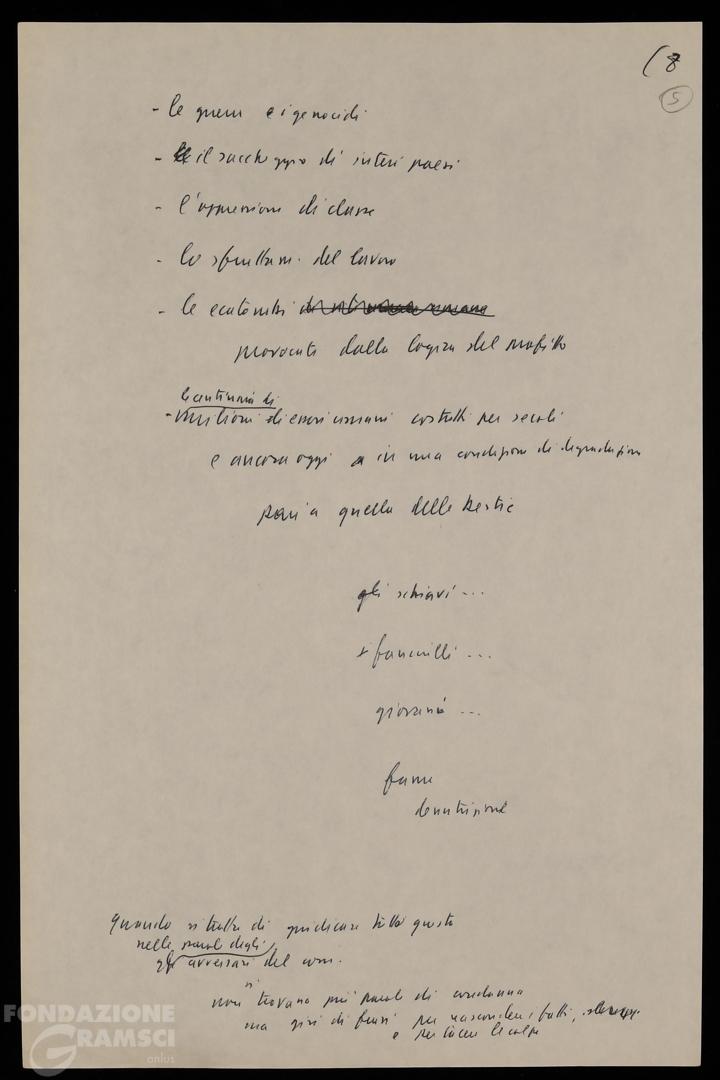 (8
5
- le guerre e i genocidi
- il saccheggio di interi paesi
- l'oppressione di classe
- lo sfruttam. del lavoro
- le ecatombi
provocate dalla logica del profitto
centinaia di
- milioni di esseri umani costretti per secoli
e ancora oggi a in una condizione di degradazione
pari a quella delle bestie
gli schiavi ...
i fanciulli ...
giovani ...
fame
denutrizione
Quando si tratta di giudicare tutto questo
nelle parole degli
gli avversari del com.
si
non trovano più parole di condanna
ma giri di frasi per nascondere i fatti,
e per tacere le colpe
FONDAZIONE
GRAMSCI
onlus